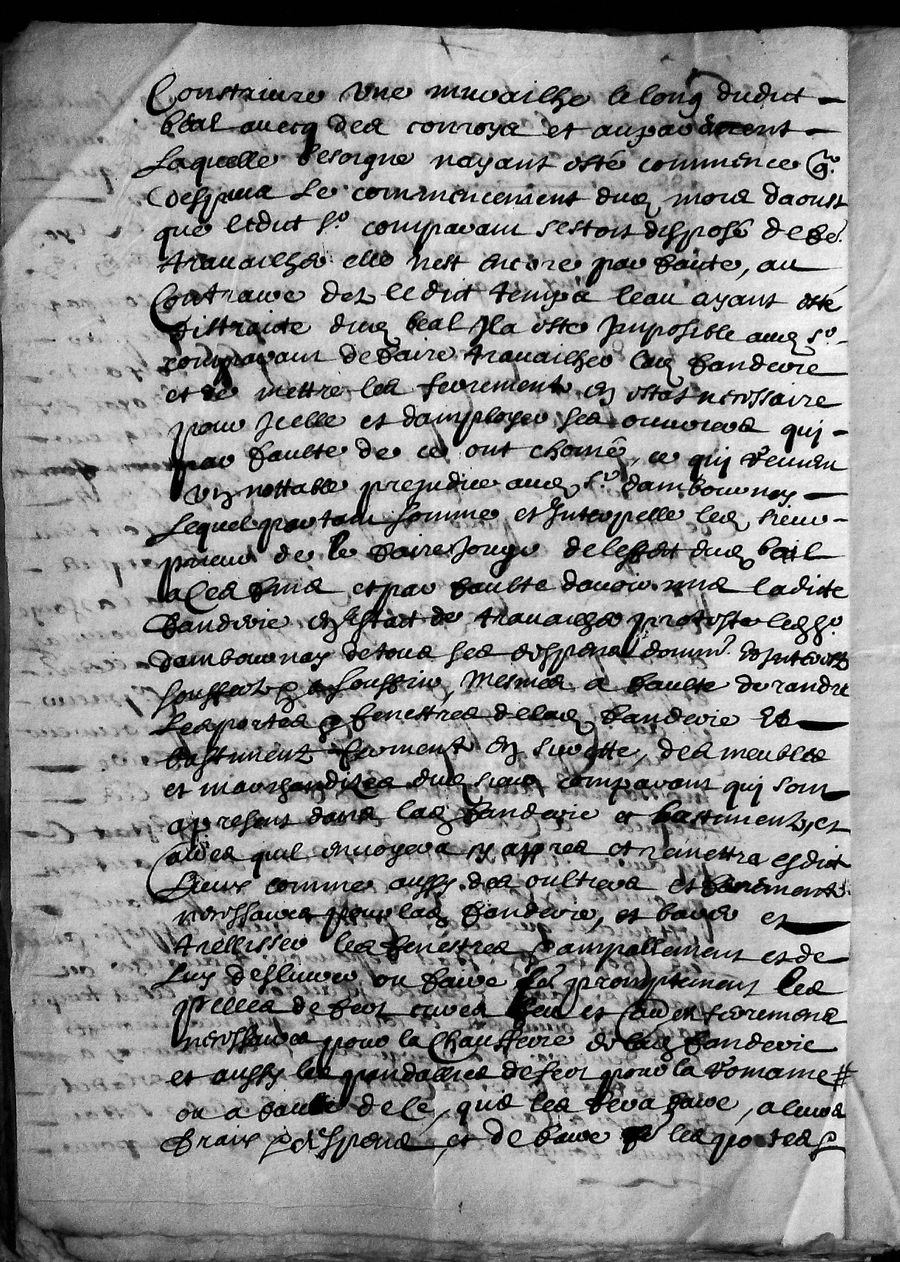 Construire une murailhe le long dudict
béal avecq des conroys et auparavent
Laquelle besoigne nayant esté commencé
Despuis Le commencement duq mois daoust
que ledict sr comparant sestoit disposé de fe
travailher elle nest encore par faicte, au
Contraire dez ledict temps leau ayant esté
distraite duq béal Il a esté Impossible auq sr
comparant de faire travailher laq fanderie
et de mettre les ferrement en estat nécessaire
pour Icelle et damployer ses ouvriers qui
par faulte de ce ont chomé, ce qui revient
Un nottable prejudice auq sr dambournay
Lequel partant somme et Interpelle les sieur
prieur de le faire Jouyr de leffect duq béal
a ces fins et par faulte davoir mis ladicte
fanderie en estat de travailher proteste led sr
dambournay de tous ses despens domm Interestz
soufferts et a souffrir, Mesmes a faulte de randre
Les portes et fenestres de laq fanderie et
bastiment ferment en suretté, des meubles
et marchandizes duq sieur comparant qui sont
apresent dans laq fanderie et bastiment, et
autres quil envoyera sy appres et remettra esdict
Lieux comme aussy des oultiers et ferrements
nécessaires pour laq fanderie, et barrer et
trellisser les fenestres dampallement et de
Luy deslivrer ou faire promptement les
pieces de fert et autres ferrement
nécessaires pour la Chauferie de laq fanderie
et aussy les de fer pour la romaine #
ou a faulte de ce, que les fera faire, a leurs
fraix et despens, et de faire les portes et